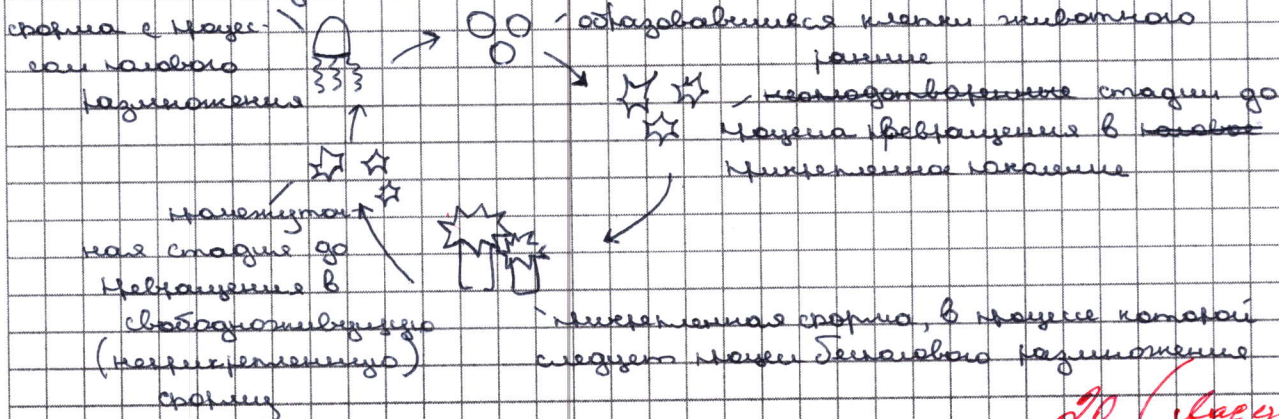 форма с процес-
сом полового
размножения
образовавшиеся клетки животного
ранние
неоплодотворенные стадии до
процесса превращения в половое
прикрепленное поколение
промежуточ-
ная стадия до
превращения в
свободноживущую
(неприкрепленную)
форму
прикрепленная форма, в процессе которой
следует процесс бесполового размножения
20